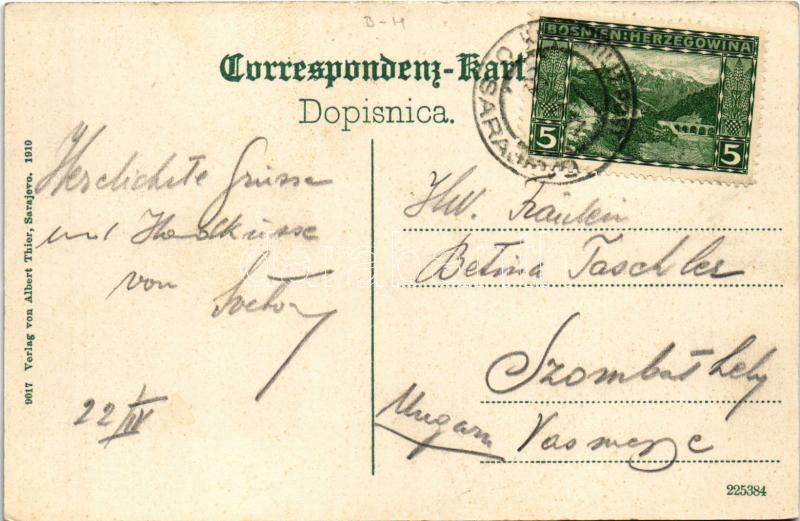 B-H
Correspondenz-Kart
Dopisnica.
BOSNIEN:HERZEGOWINA
5 5
SARAJEVO
9017 Verlag von Albert Thier, Sarajevo. 1910
Herzlichste Grüsse
und Handküsse
von Svetor
22/IV
Hw. Fräulein
Betina Taschler
Szombathely
Ungarn Vasmegye
225384
darabanth